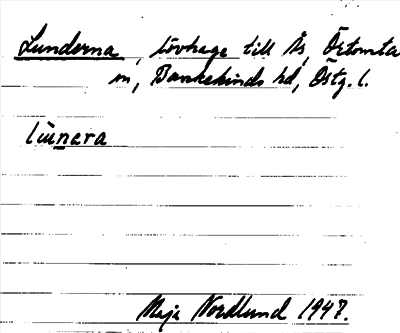 Lunderna, lövhage till Ås, Örtomta
sn, Bankekinds hd, Östg. l.
lu̇nera
Maja Nordlund 1947.